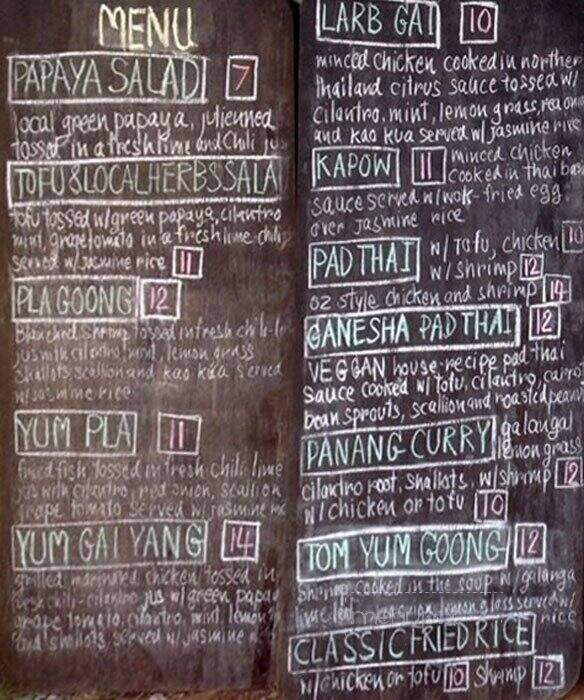 MENU
PAPAYA SALAD 7
local green papaya, julienned
tossed in a fresh lime and chili jus
TOFU & LOCAL HERBS SALA
tofu tossed w/green papaya, cilantro
mint, grape tomato in a fresh lime-chili
served w/ jasmine rice 11
PLA GOONG 12
Blanched shrimp tossed in fresh chili-
jus with cilantro, mint, lemon grass
shallots scallion and kao kua served
w/ jasmine rice
YUM PLA 11
fried fish tossed in fresh chili-lime
jus with cilantro, red onion, scallion
grape tomato served w/ jasmine
YUM GAI YANG 14
grilled marinated chicken tossed in
chili-cilantro jus w/ green papay
grape tomato, cilantro, mint, lemon
and shallots served w/ jasmine
LARB GAI 10
minced chicken cooked in norther
thailand citrus sauce tossed w/
cilantro, mint, lemon grass, red on
and kao kua served w/ jasmine rice
KAPOW 11 minced chicken
cooked in thai bas
sauce served w/ wok-fried egg
over jasmine rice
PAD THAI w/ Tofu, chicken 10
w/ shrimp 12
oz style chicken and shrimp 14
GANESHA PAD THAI 12
VEGGAN house-recipe pad-thai
sauce cooked w/ tofu, cilantro, carrot
bean sprouts, scallion and roasted pean
PANANG CURRY galangal
lemon grass
cilantro root, shallots, w/ shrimp 12
w/ chicken or tofu 10
TOM YUM GOONG 12
shrimp cooked in the soup w/ galanga
lime leaf red onion lemon glass served w/
rice
CLASSIC FRIED RICE
w/ chicken or tofu 10 shrimp 12